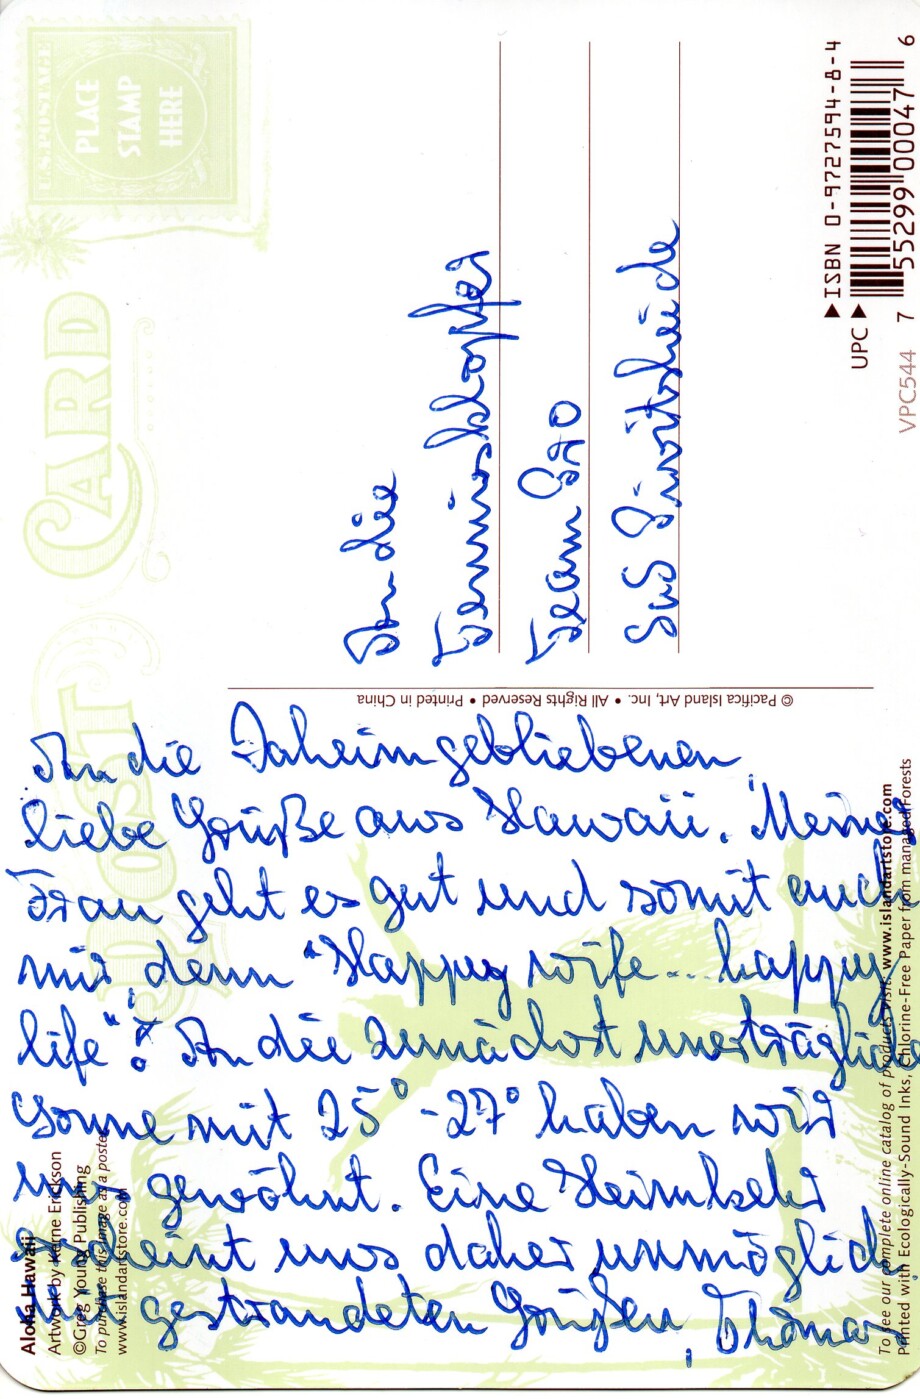 An die Daheimgebliebenen,
liebe Grüße aus Hawaii. Meiner
Frau geht es gut und somit auch
mir, denn "Happy wife... happy
life"! An die zunächst unerträgliche
Sonne mit 25° - 27° haben wir
uns gewöhnt. Eine Heimkehr
scheint uns daher unmöglich.
Mit gestrandeten Grüßen, Thomas
An die
Tennisklopfer
Team Ü40
SuS Pivitsheide
POST CARD
U.S. POSTAGE
PLACE
STAMP
HERE
© Pacifica Island Art, Inc. • All Rights Reserved • Printed in China
▶ISBN 0-9727594-8-4
UPC ▶
7 55299 00047 6
VPC544
Aloha Hawaii
Artwork by Kerne Erickson
©Greg Young Publishing
To purchase this image as a poster
www.islandartstore.com
To see our complete online catalog of products visit: www.islandartstore.com
Printed with Ecologically-Sound Inks, Chlorine-Free Paper from managed Forests